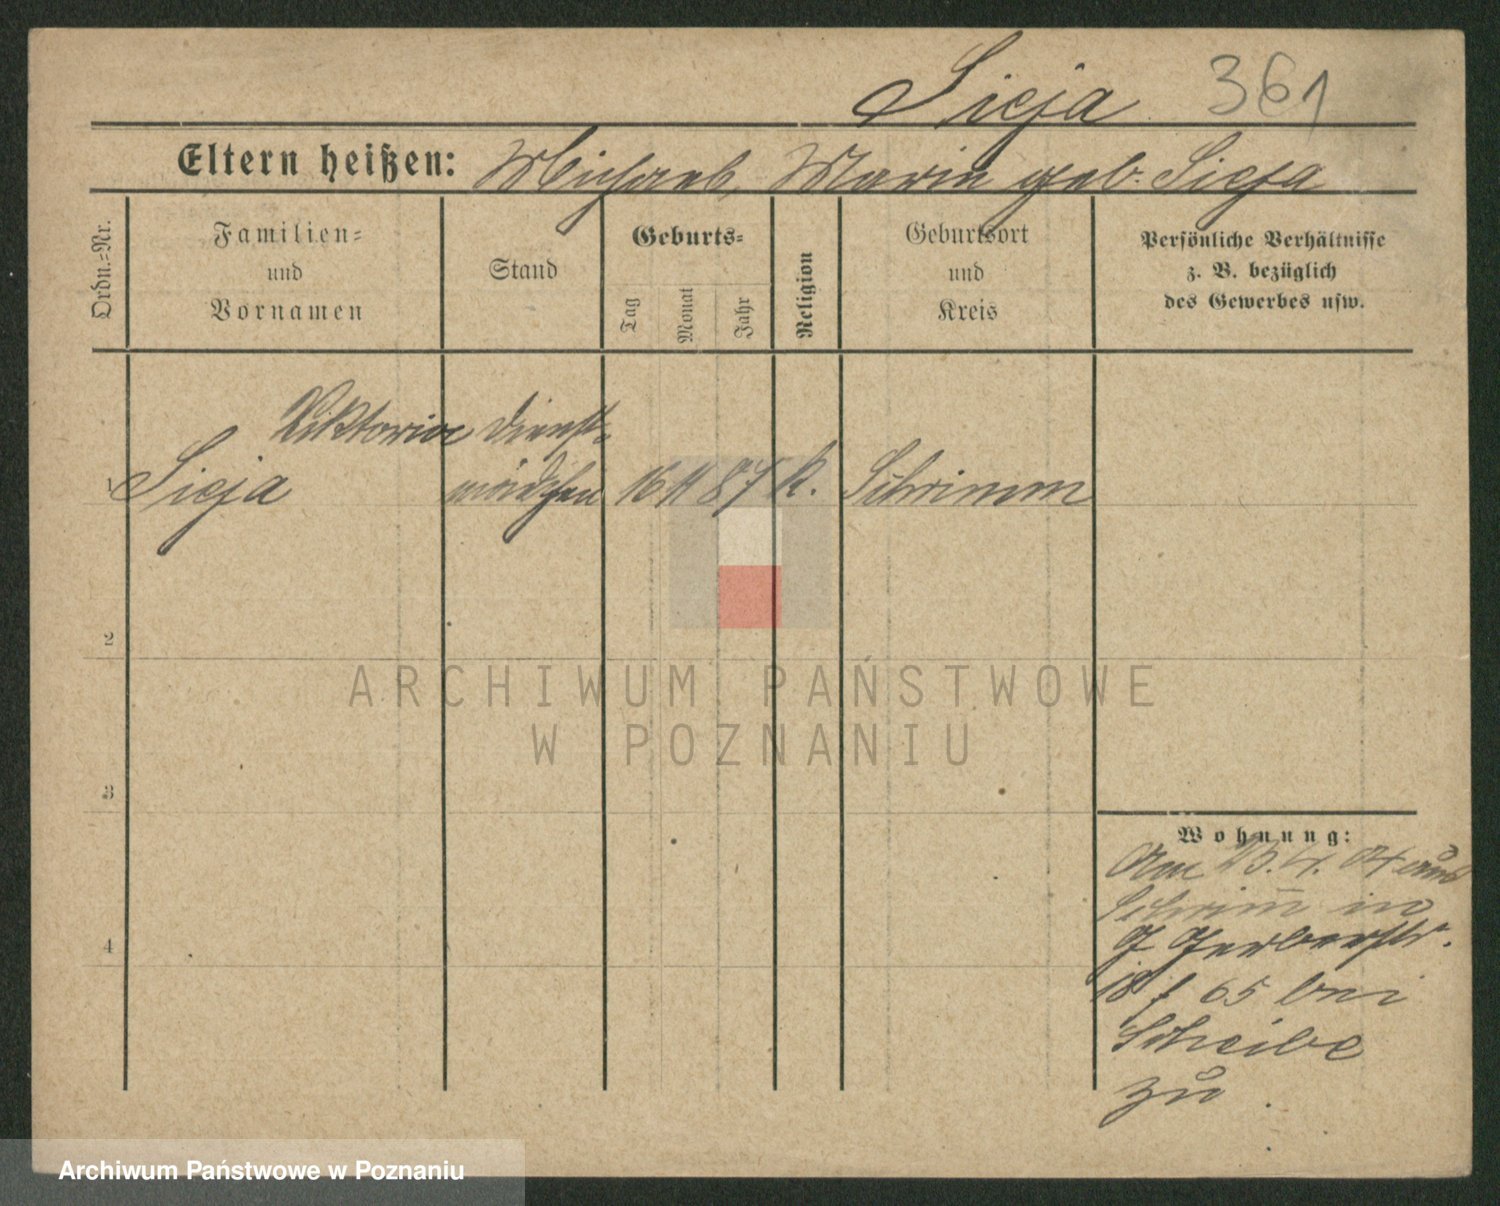 Sieja 361
Eltern heißen: Michael, Marie geb. Sieja
Ordn.=Nr.
Familien=
und
Vornamen
Stand
Geburts=
Tag
Monat
Jahr
Religion
Geburtsort
und
Kreis
Persönliche Verhältnisse
z. B. bezüglich
des Gewerbes usw.
Viktoria Dienst-
1 Sieja mädchen 16 11 87 k. Schrimm
2
3
4
Wohnung:
Am 23.4.04 aus
Schrim̅ in
Gerberstr.
18 f 65 bei
Scheibe
zu.
ARCHIWUM PAŃSTWOWE
W POZNANIU
Archiwum Państwowe w Poznaniu